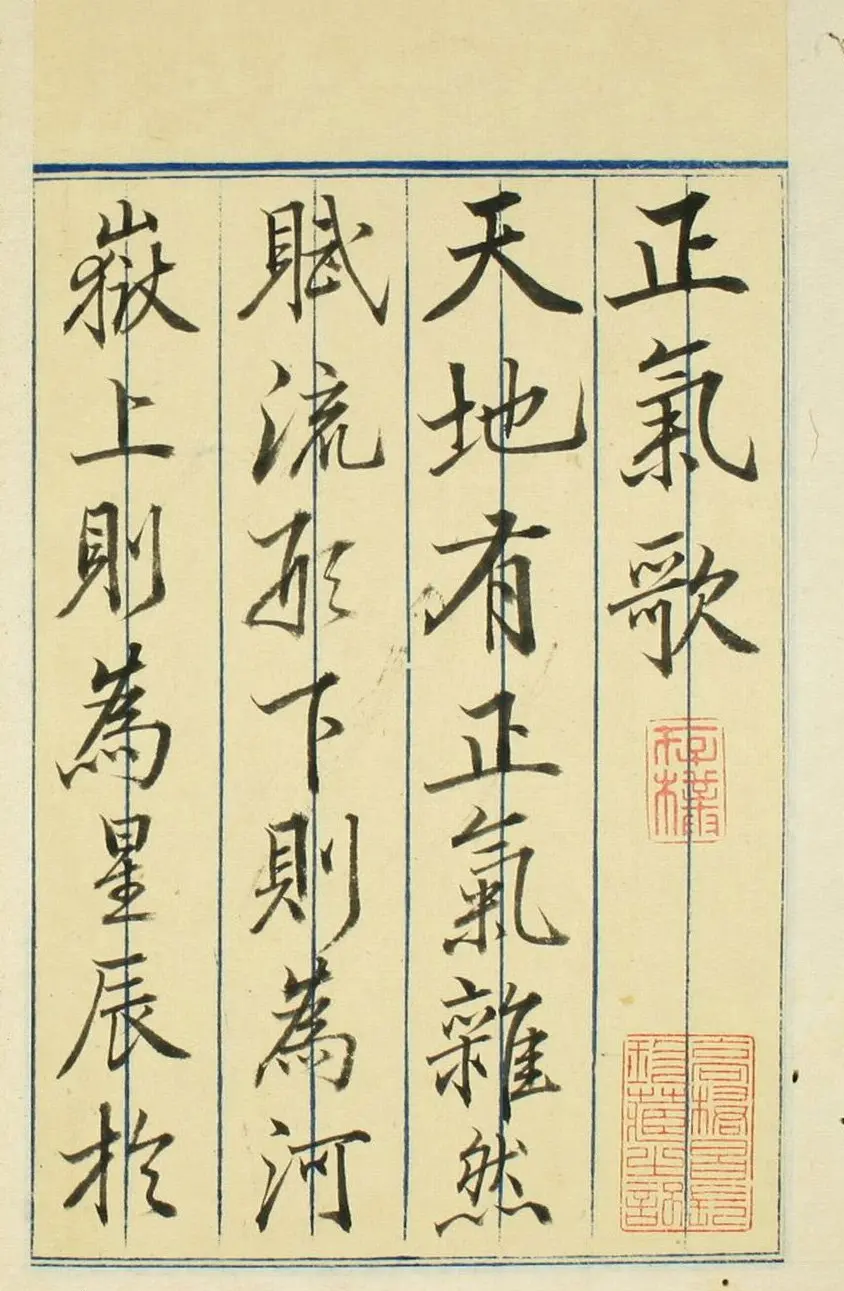 正氣歌
天地有正氣雜然
賦流形下則為河
嶽上則為星辰於